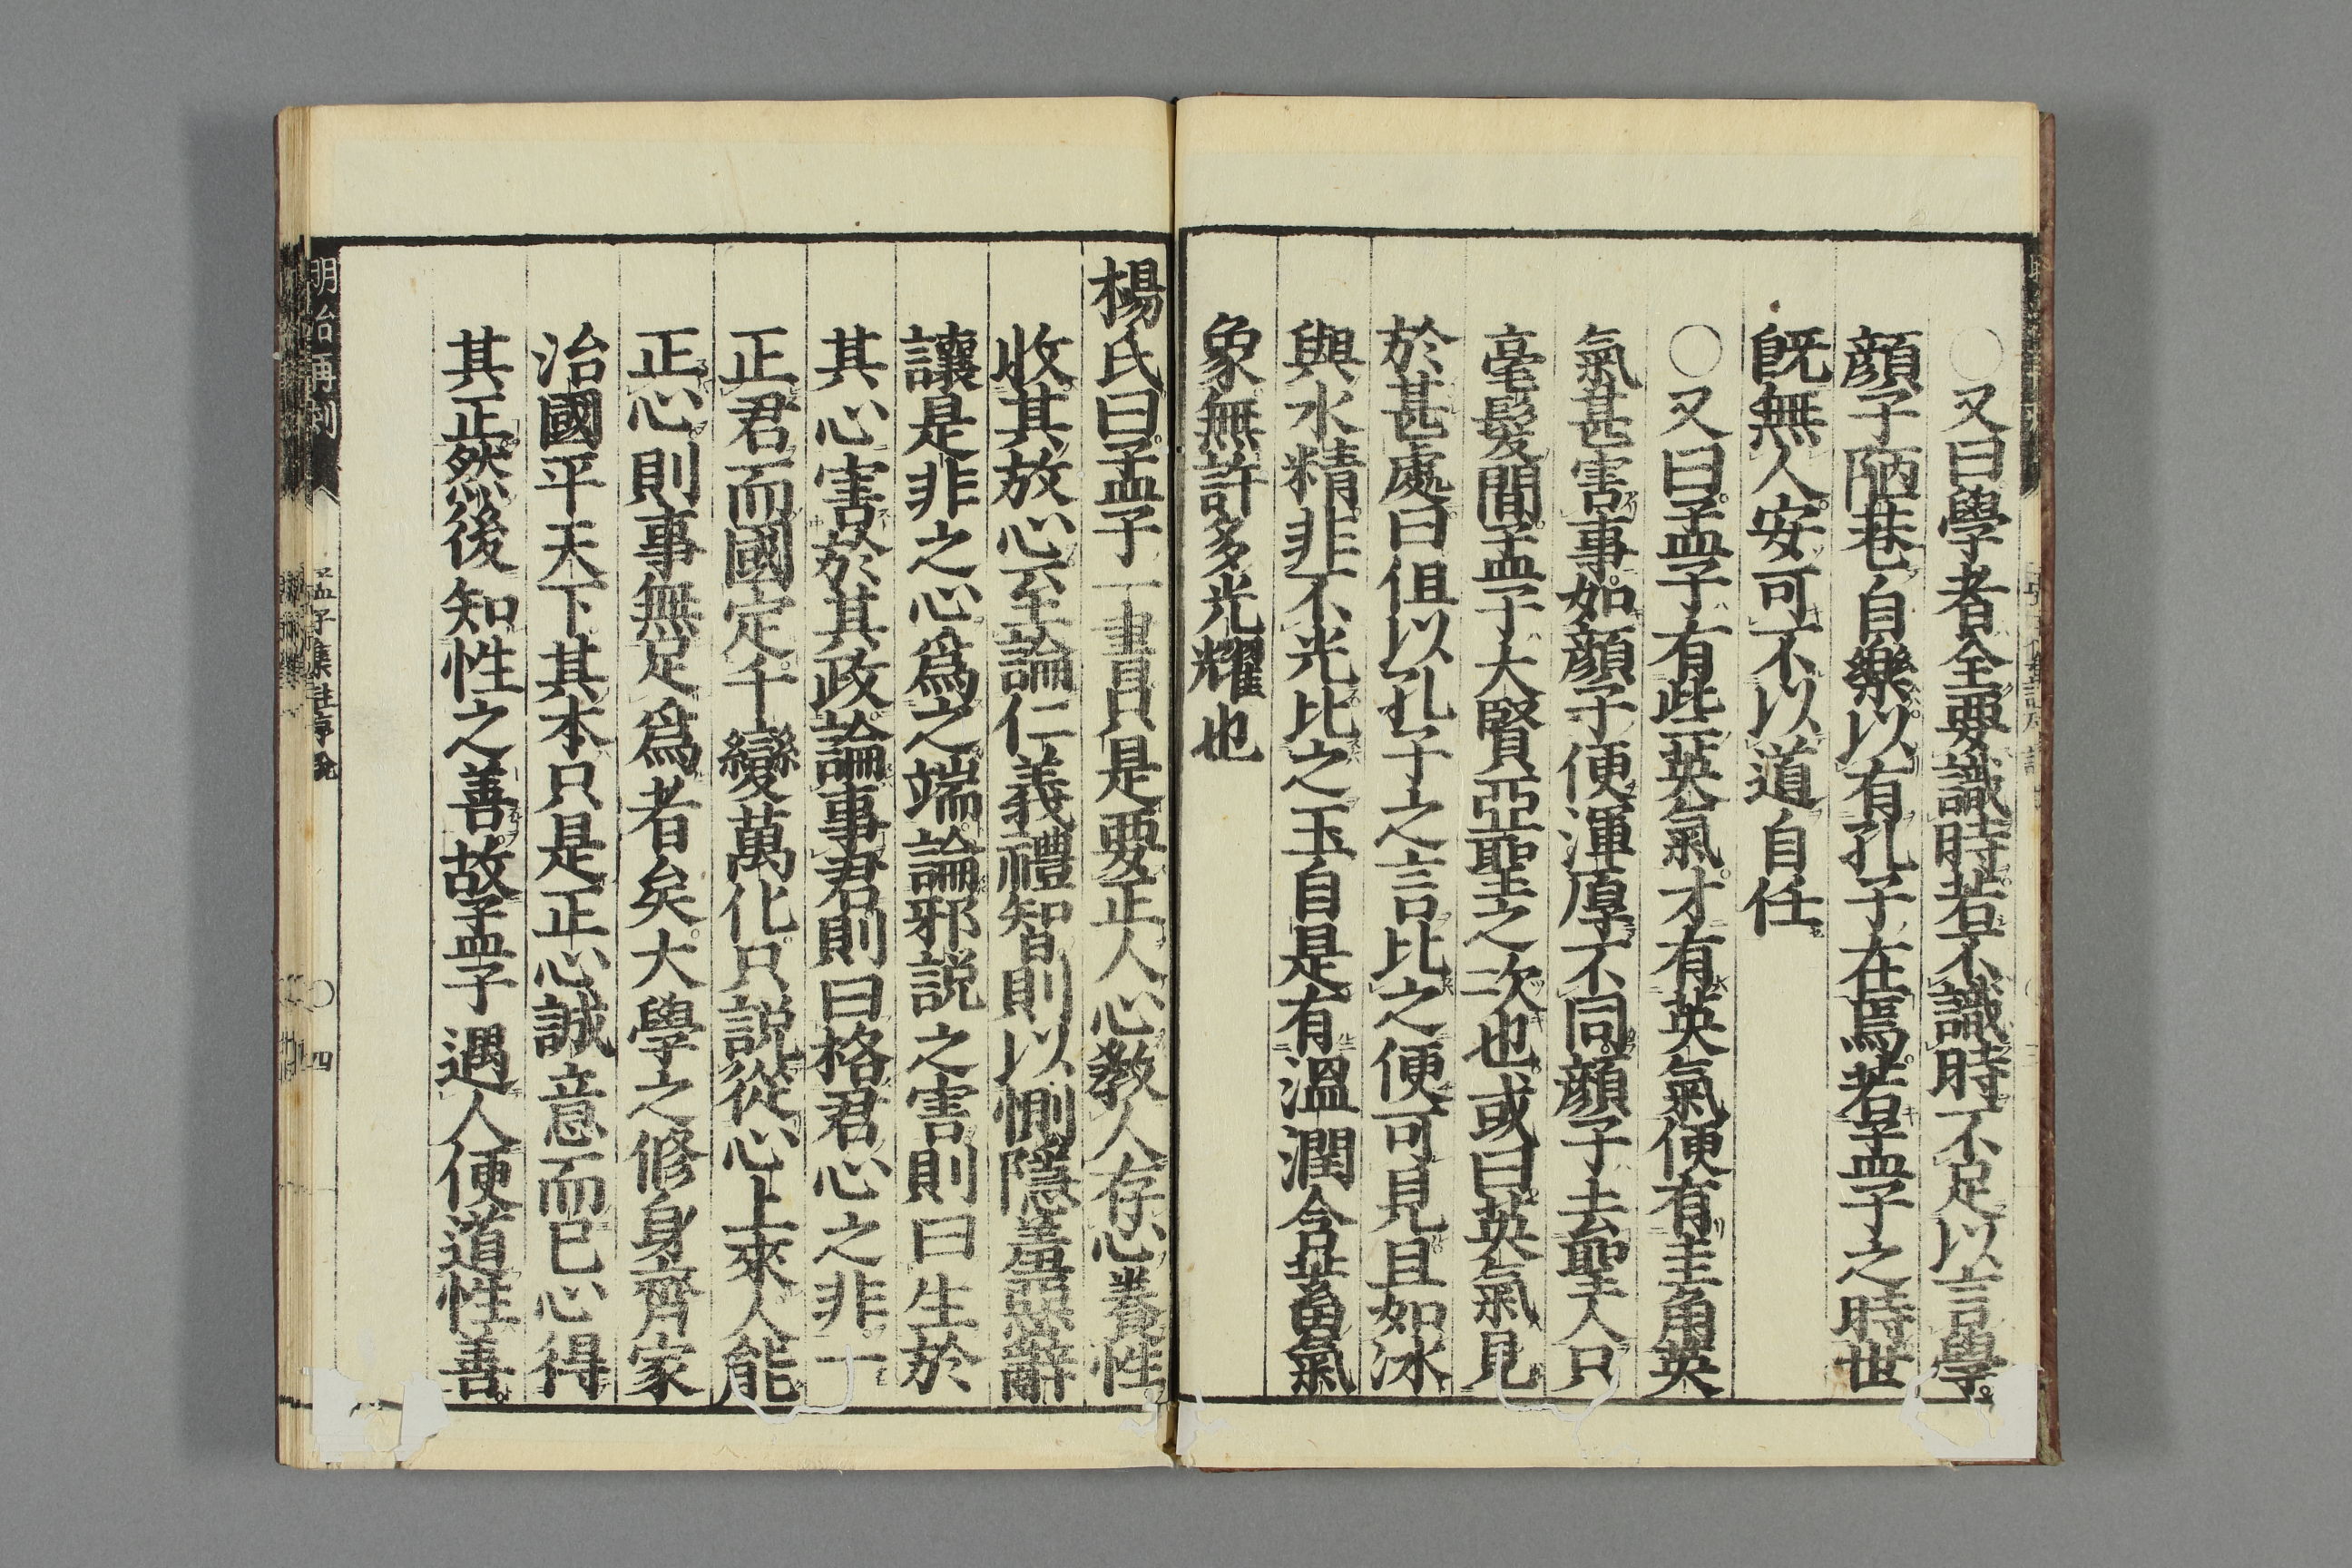 〇又曰學者全要識時若不識時不足以言學
顔子陋巷自樂以有孔子在焉若孟子之時世
旣無人安可不以道自任
〇又曰孟子有些英氣才有英氣便有圭角英
氣甚害事如顔子便渾厚不同顔子去聖人只
毫髮間孟子大賢亞聖之次也或曰英氣見
於甚處曰但以孔子之言比之便可見且如冰
與水精非不光比之玉自是有溫潤含蓄氣
象無許多光耀也
楊氏曰孟子一書只是要正人心敎人存心養性
收其放心至論仁義禮智則以惻隱羞惡辭
讓是非之心爲之端論邪説之害則曰生於
其心害於其政論事君則曰格君心之非一
正君而國定千變萬化只説從心上來人能
正心則事無足爲者矣大學之修身齊家
治國平天下其本只是正心誠意而已心得
其正然後知性之善故孟子遇人便道性善
明治再刻
孟子集註序說
〇四